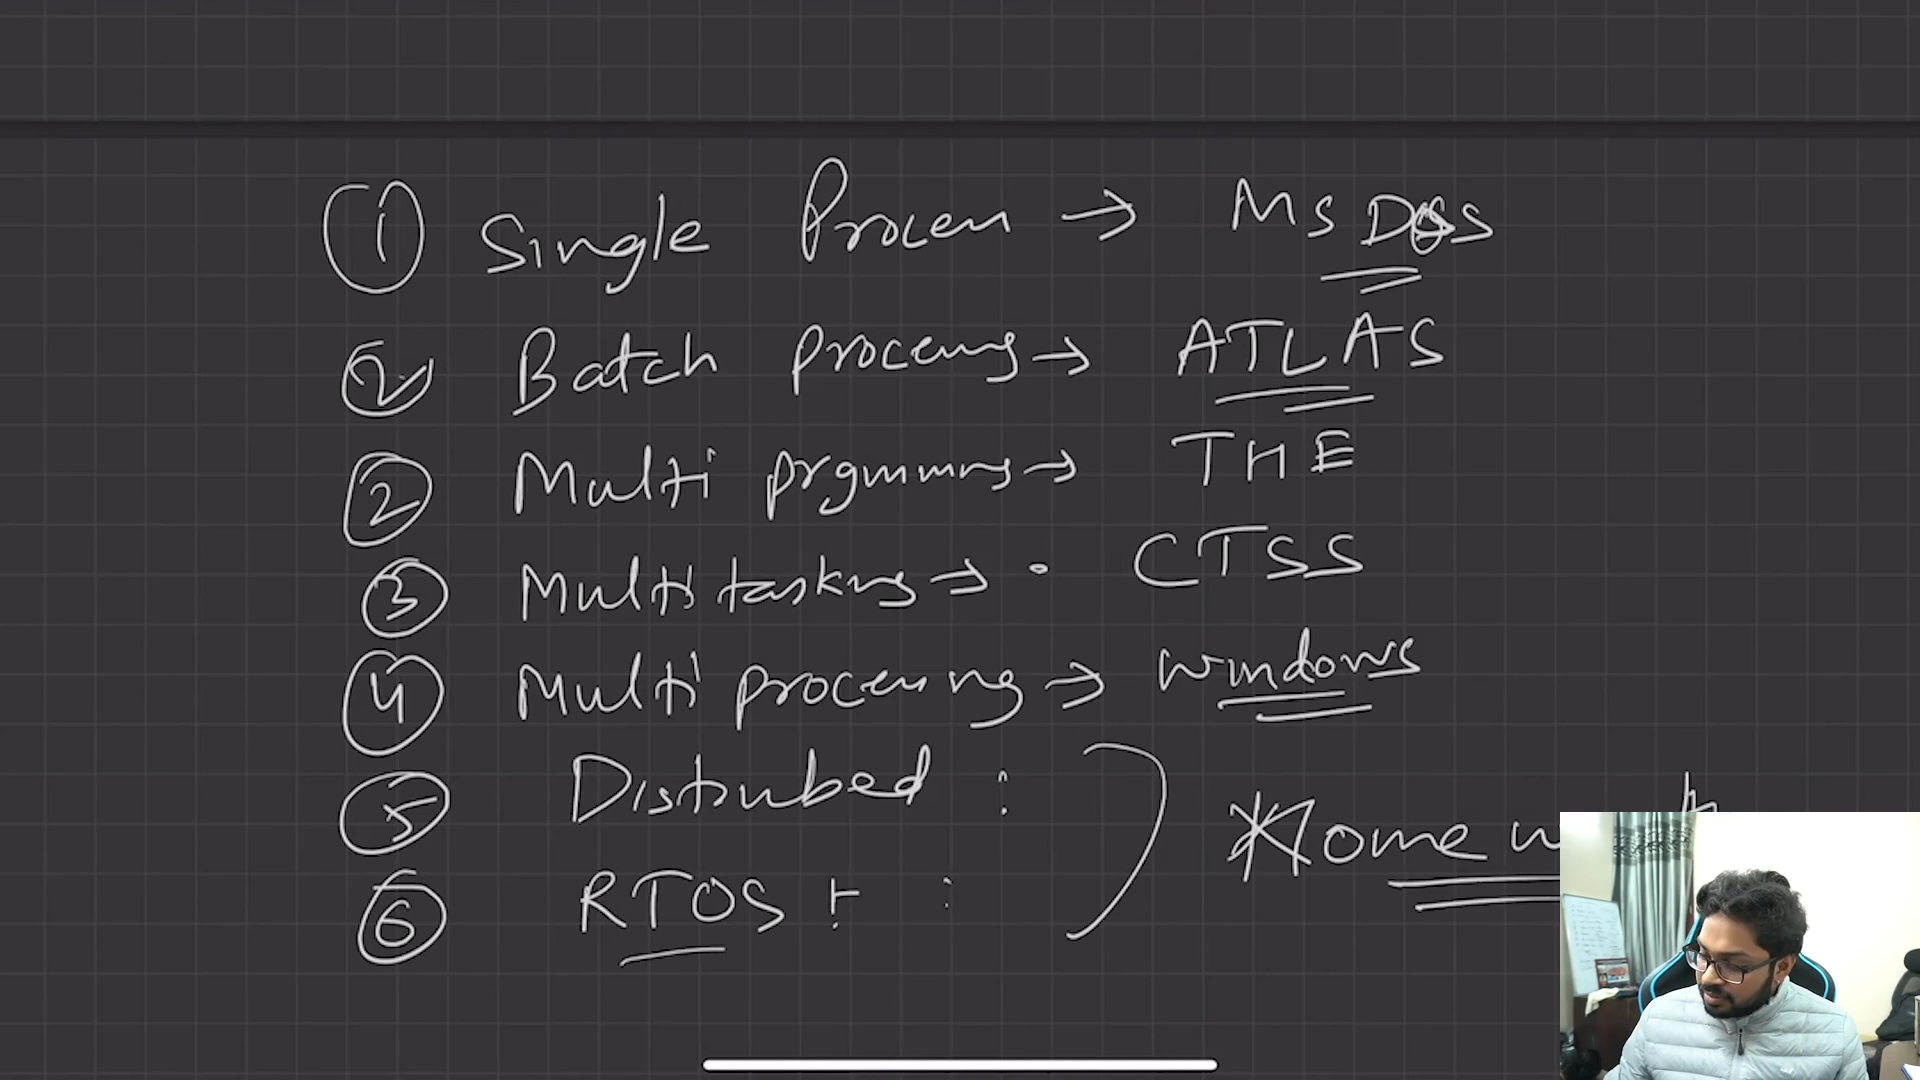 ① Single Process → MS DOS
② Batch processing → ATLAS
② Multi prgmming → THE
③ Multitasking → • CTSS
④ Multi processing → Windows
⑤ Distributed :
Home w
⑥ RTOS :